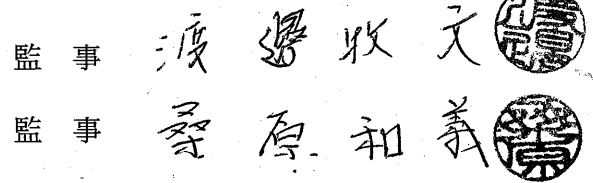 監事 渡邊收文
監事 桑原和義